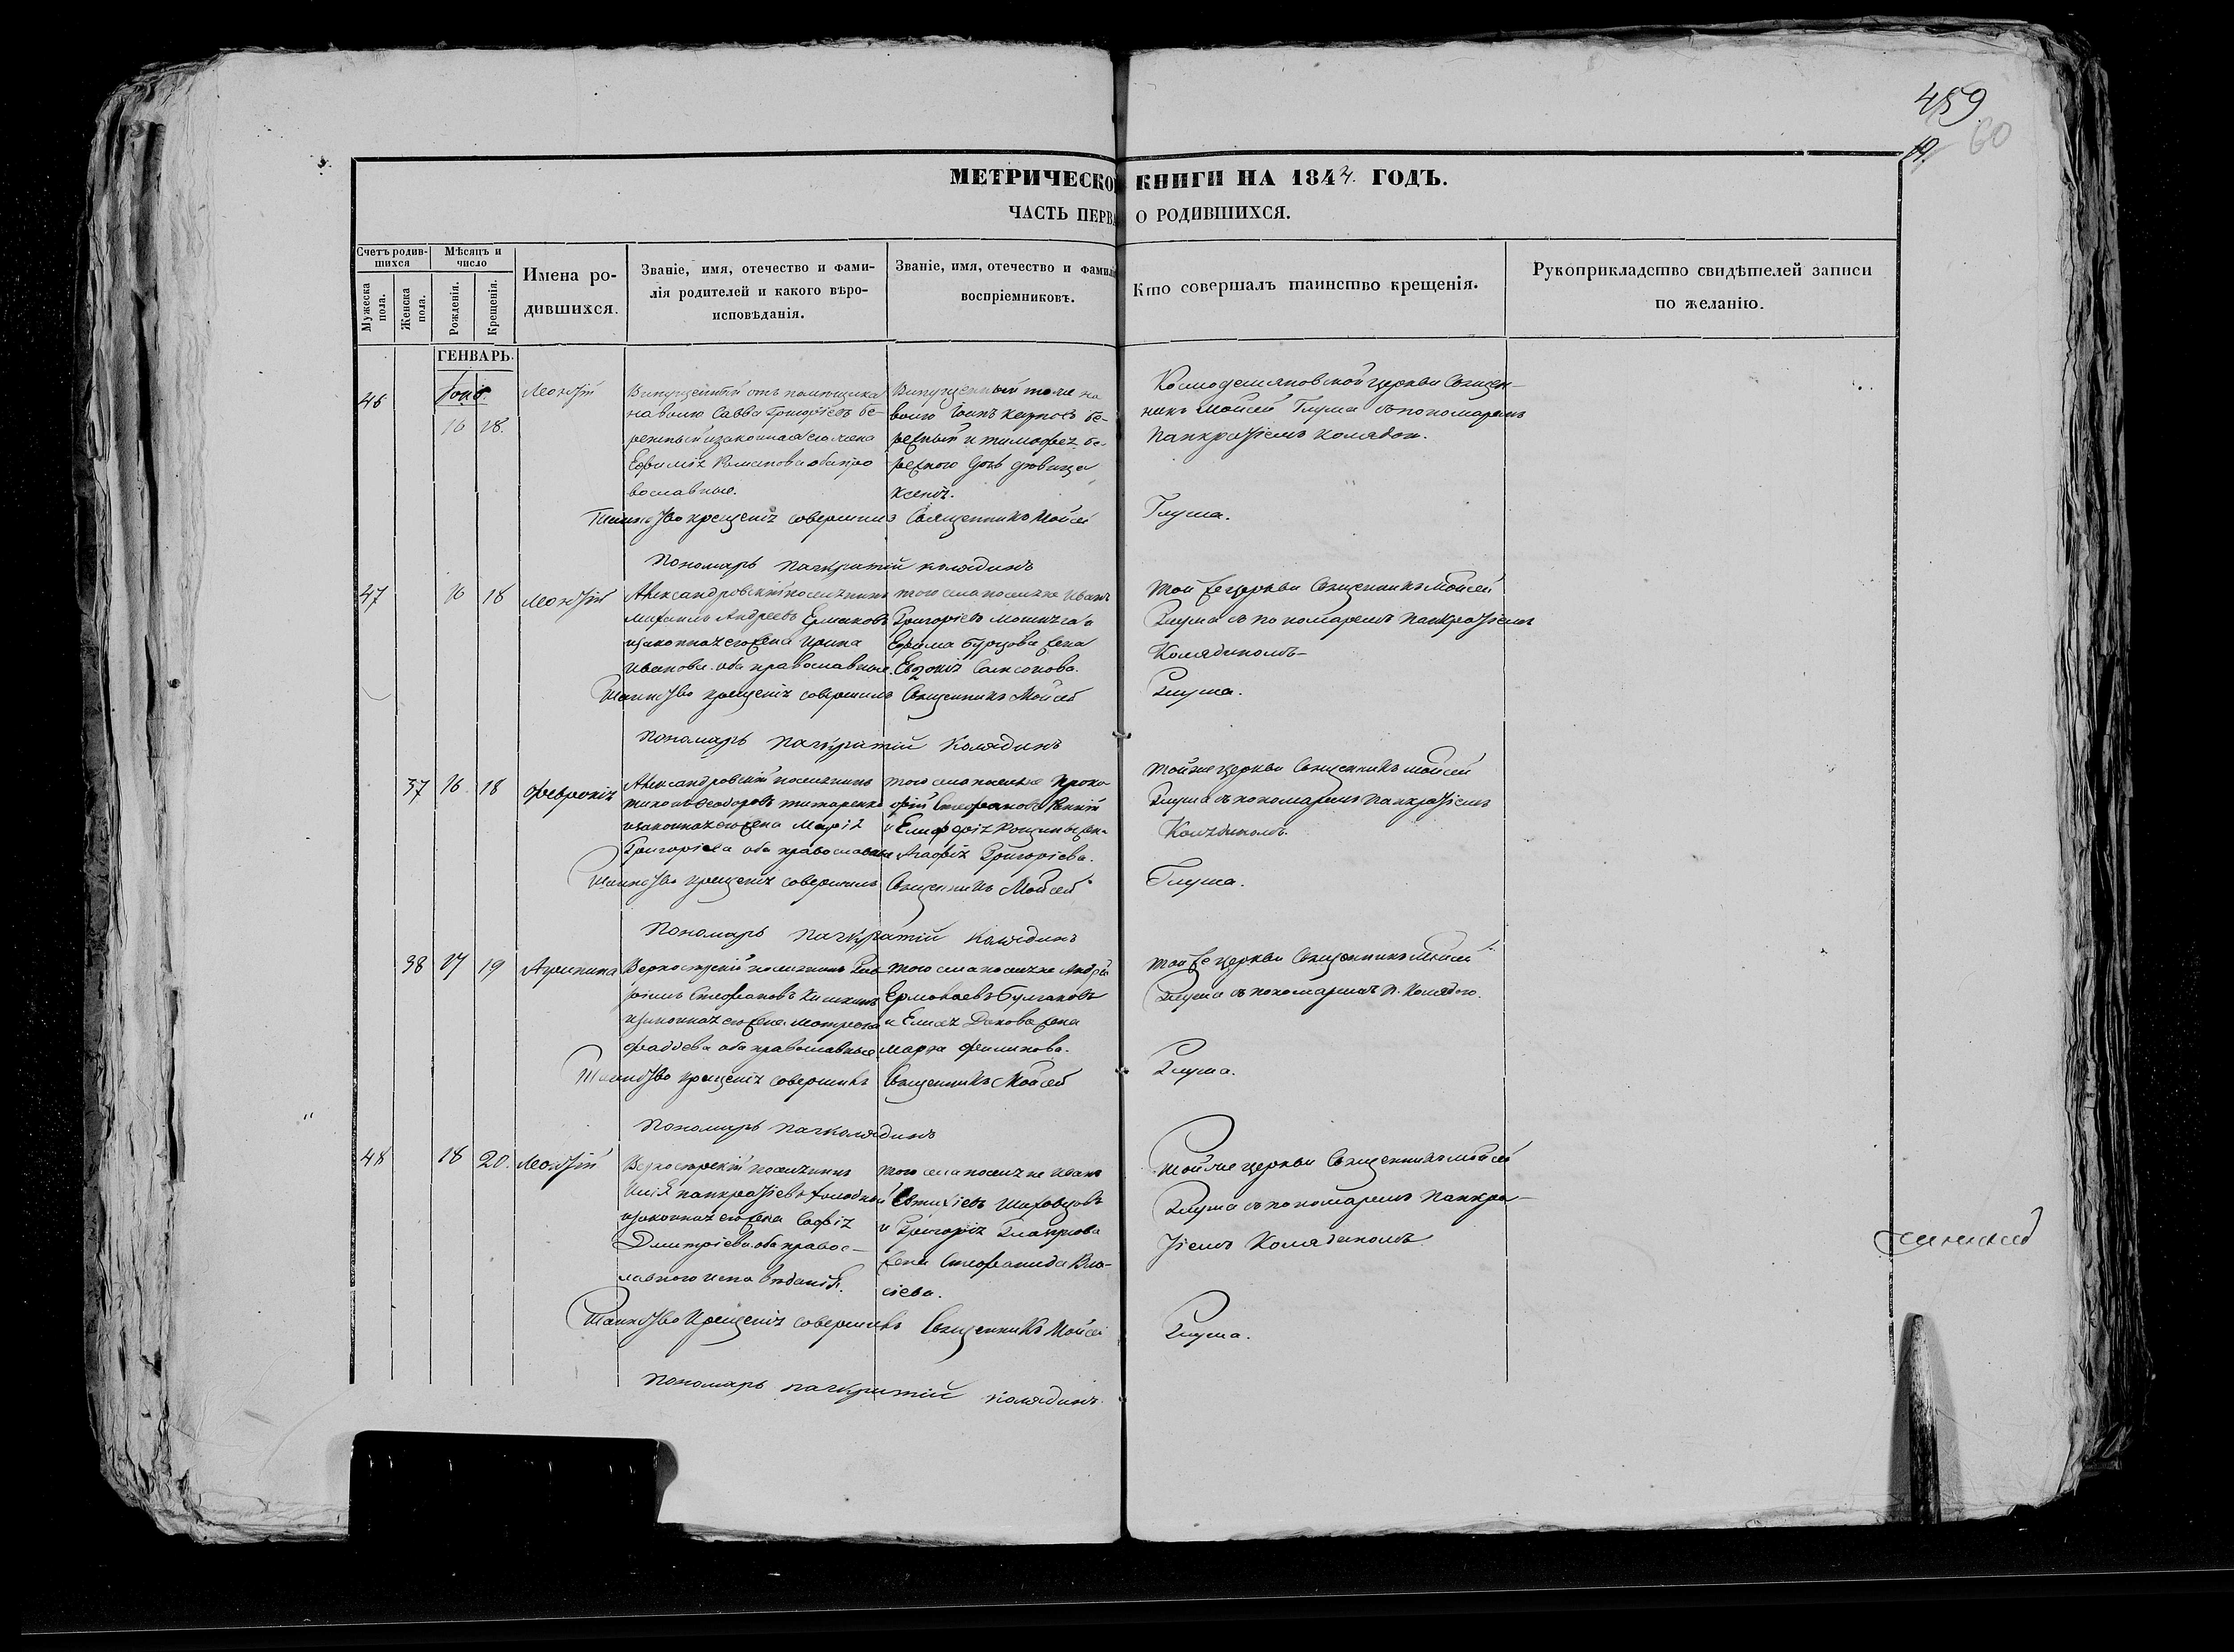 459
60
19.
МЕТРИЧЕСКО КНИГИ НА 1842. ГОДЪ.
ЧАСТЬ ПЕРВА О РОДИВШИХСЯ.
Счетъ родив-
шихся
Мѣсяцъ и
число
Мужеска
пола.
Женска
пола.
Рожденія.
Крещенія.
Имена ро-
дившихся.
Званіе, имя, отечество и фами-
лія родителей и какого вѣро-
исповѣданія.
Званіе, имя, отечество и фамилі
воспріемниковъ.
Кто совершалъ таинство крещенія.
Рукоприкладство свидѣтелей записи
по желанію.
ГЕНВАРЬ.
46
16 18.
Леонтій
Випущенный отъ помѣщика
на волю Савва Григорьевъ Бе-
режный и законная его жена
Ефимія обапра
вославные.
Випущенный то же на
волю Карповъ Бе-
режный и Тимофея Бе-
режного дочь дѣвица
Ксенія.
Космодемяновской церкви Священ-
никъ Мойсей Глума съ пономаремъ
Панкратіемъ Колядон.
Таинство крещенія совершилъ Священникъ Мойсей Глума.
Пономарь Панкратій Колядинъ
47 16 18 Леонтій
Александровскій поселянинъ
Михаилъ Андреевъ Ермаковъ
и законная его жена Ирина
Иванова оба православные.
того села поселяне Иванъ
Григоріевъ
Ефима Бурцова жена
Евдокія Самсонова.
той же церкви Священникъ Мойсей
Глума съ пономаремъ Панкратіемъ
Колядиномъ
Таинство крещенія совершилъ Священникъ Мойсей Глума.
Пономарь Панкратій Колядинъ
37 16 18 Февронія
Александровскій поселянинъ
Тихонъ Феодоровъ Титаренко
и законная его жена Марія
Григоріева оба православные
того села поселяне Проко
фій Стефановъ
и Елифорія жена
Агафія Григоріева.
той же церкви Священникъ Мойсей
Глума съ пономаремъ Панкратіемъ
Колядиномъ.
Таинство крещенія совершилъ Священникъ Мойсей Глума.
Пономарь Панкратій Колядинъ
38 17 19 Агрипина
поселянинъ
Стефановъ
и законная его жена Мотрона
Фаддѣева оба православные
того села поселяне Андрей
Ермолаевъ Булгаковъ
и Елисея жена
Марфа Филипова.
той же церкви Священникъ Мойсей
Глума съ пономаремъ П. Колядою.
Таинство крещенія совершилъ Священникъ Мойсей Глума.
Пономарь Пан Колядинъ
48 18 20. Леонтій
поселянинъ
Илія Панкратіевъ Холодный
и законная его жена Софія
Дмитріева оба правос-
лавного исповѣданія.
того села поселяне Иванъ
Евтихіевъ Шаховцовъ
и Григорія
жена Стефанида Вла-
сіева.
той же церкви Священникъ Мойсей
Глума съ пономаремъ Панкра-
тіемъ Колядиномъ
Таинство крещенія совершилъ Священникъ Мойсей Глума.
Пономарь Панкратій Колядинъ